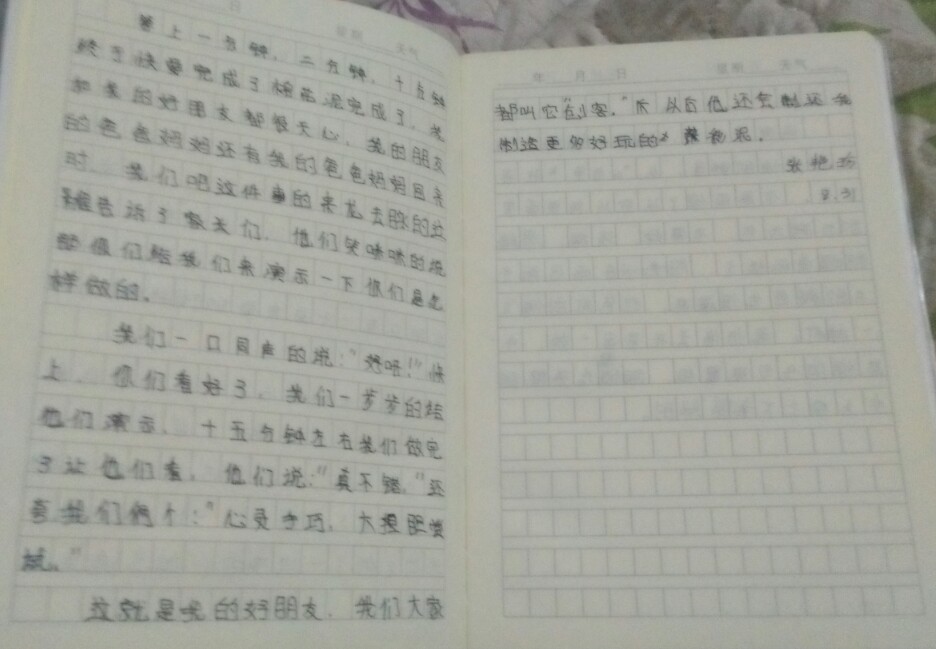 日 星期 天气
晚上一分钟，二分钟，十分钟
终于快要完成了棉花泥完成了，我
和我的好朋友都很天心，我的朋友
的爸爸妈妈还有我的爸爸妈妈回来
时，我们吧这件事的来龙去脉的
告诉了家人们，他们笑嘻嘻的说
你们给我们来演示一下你们是怎
样做的。
我们一口同声的说：“好呀！”
上，你们看好了，我们一步步的给
他们演示，十五分钟左右我们做完
了让他们看，他们说：“真不错。”还
夸我们俩个：“心灵手巧，大胆尝
试。”
这就是我的好朋友，我们大家
年 月 日 星期 天气
都叫它“创客，” 以后他还会
制造更多好玩的 泥，
张艳
8.31